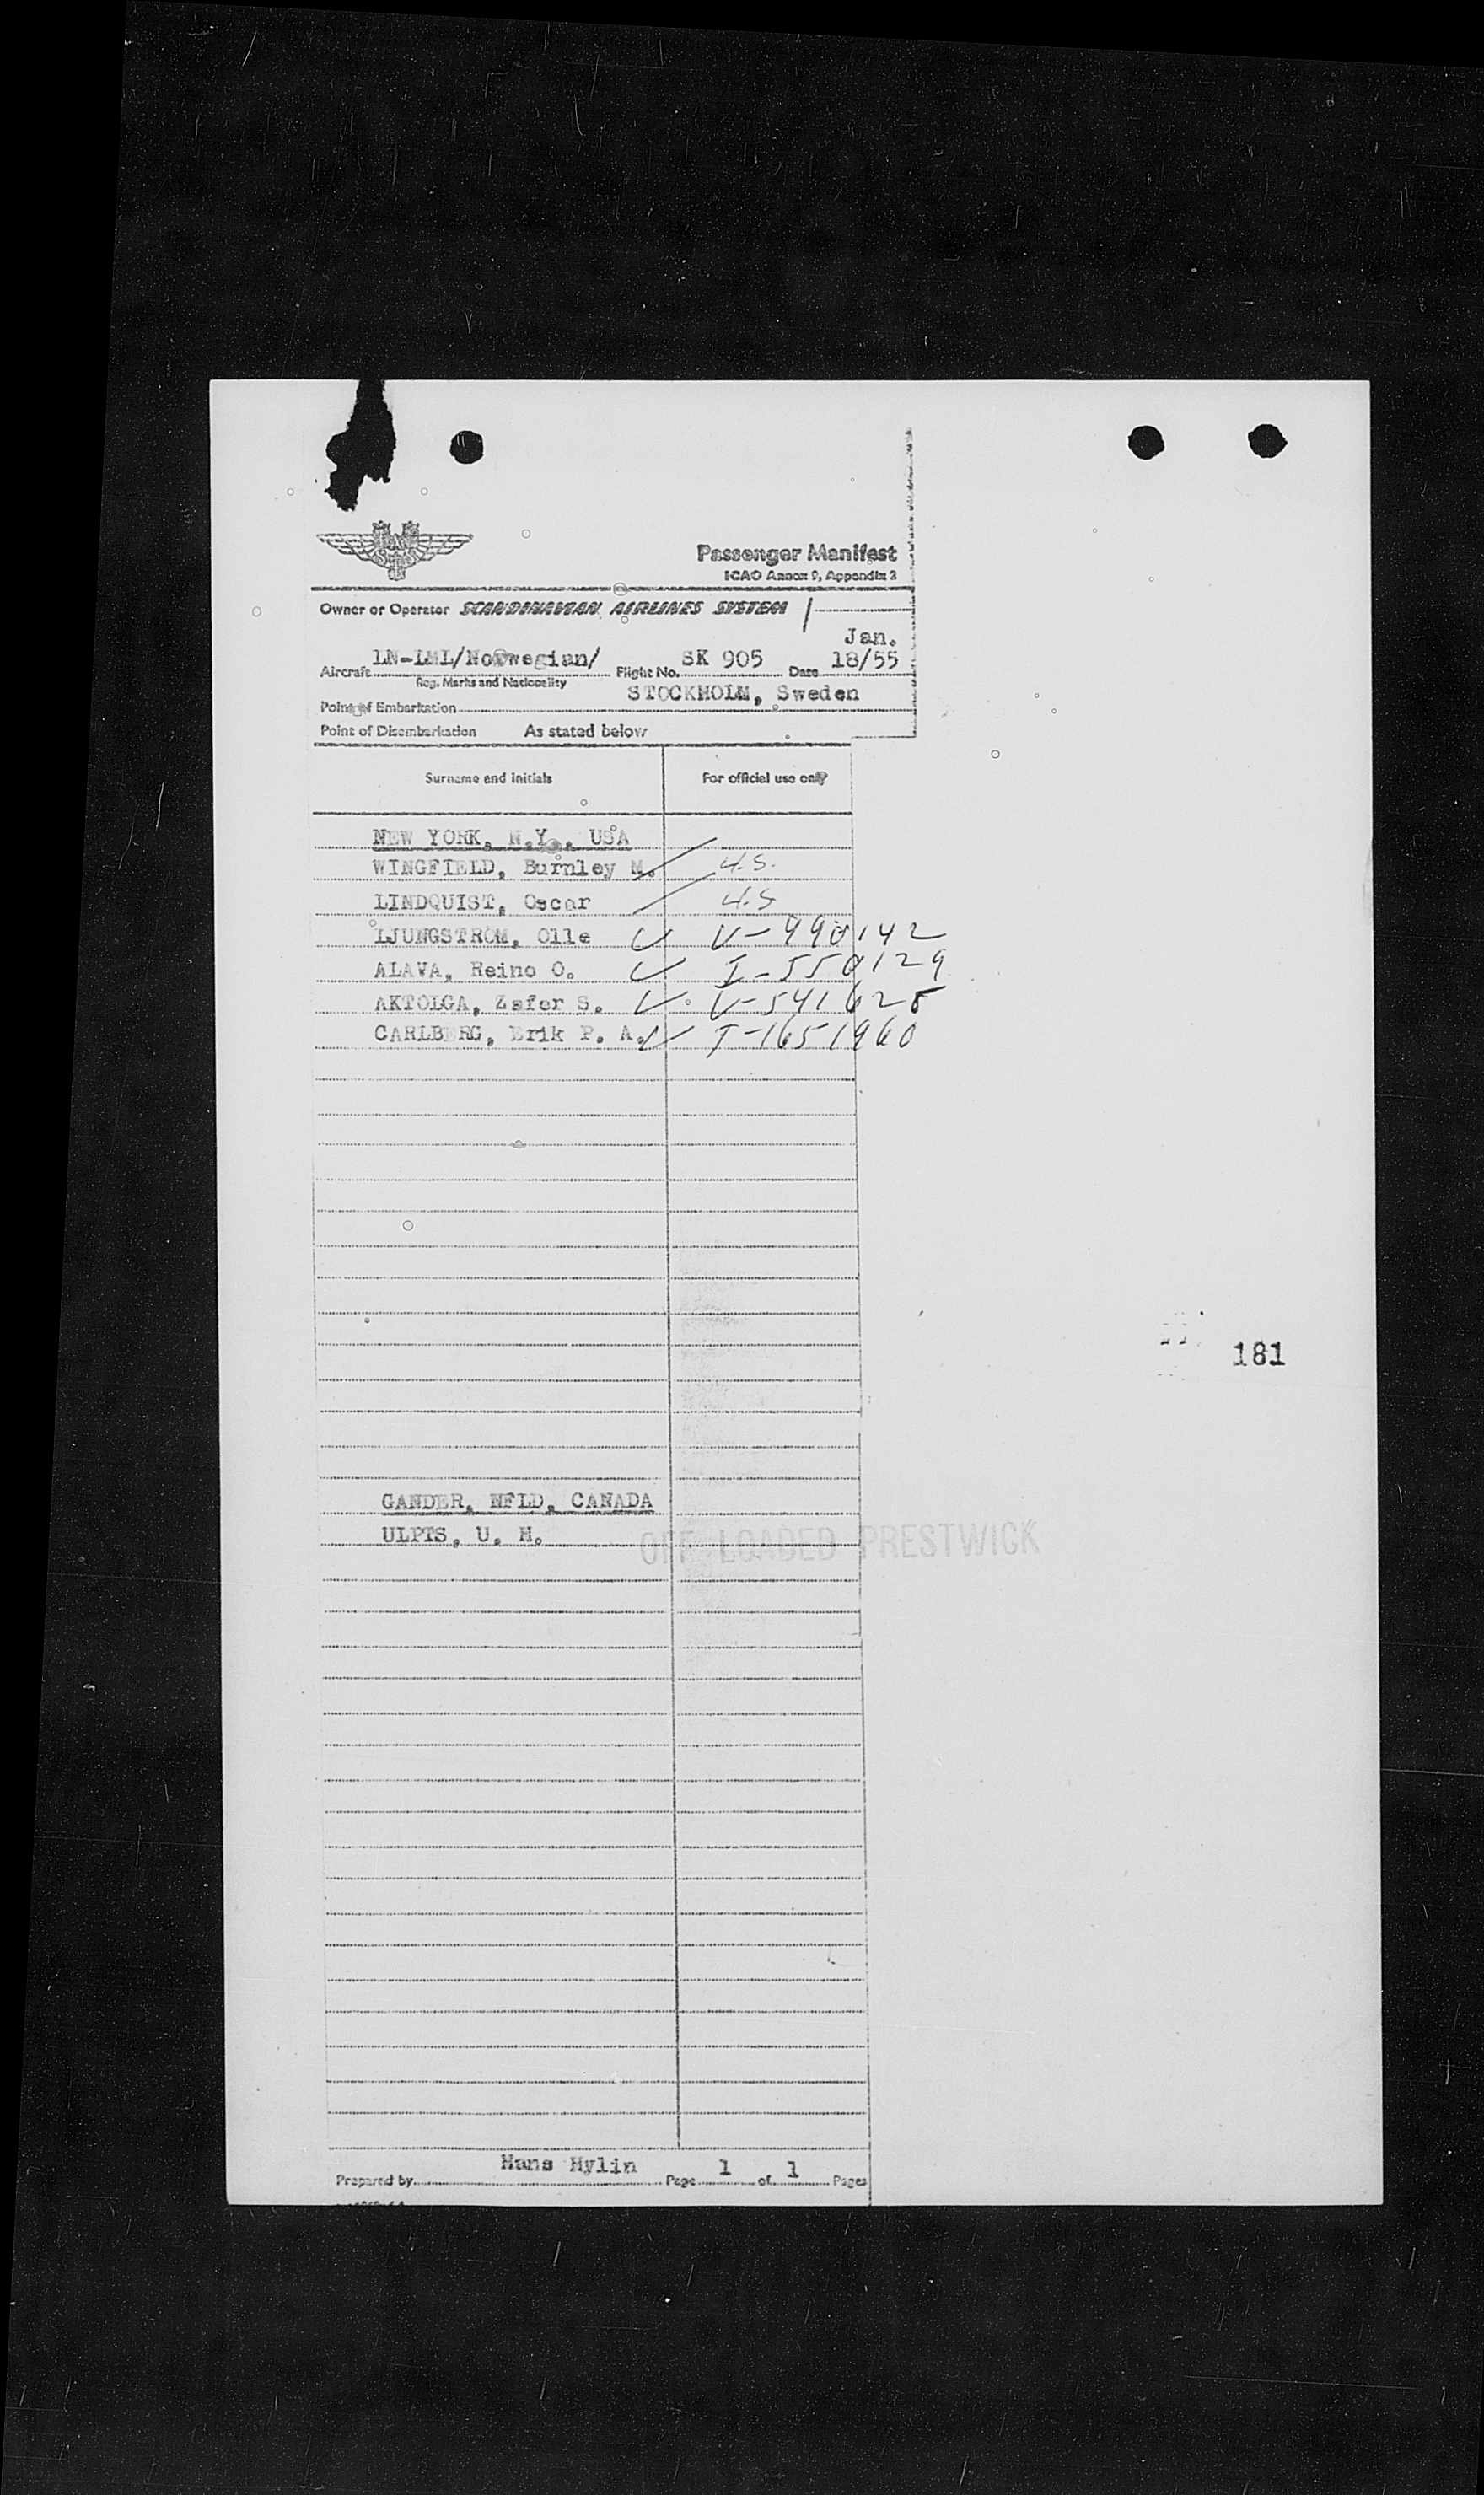 Passenger Manifest
ICAO Annex 9, Appendix 2
Owner or Operator SCANDINAVIAN AIRLINES SYSTEM
Jan.
Aircraft LN-LML/Norwegian/ Flight No. SK 905 Date 18/55
Reg. Marks and Nationality
Point of Embarkation STOCKHOLM, Sweden
Point of Disembarkation As stated below
Surname and initials For official use only
NEW YORK, N.Y., USA
WINGFIELD, Burnley M. U.S.
LINDQUIST, Oscar U.S
LJUNGSTROM, Olle V-990142
ALAVA, Reino O. I-550129
AKTOLGA, Zafer S. V-541628
CARLBERG, Erik P. A. T-1651960
181
GANDER, NFLD, CANADA
ULPTS, U. H. OFF LOADED PRESTWICK
Prepared by Hans Hylin Page 1 of 1 Pages